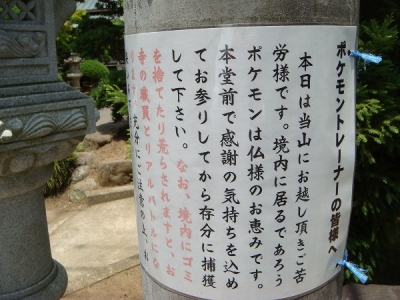 ポケモントレーナーの皆様へ
本日は当山にお越し頂きご苦
労様です。境内に居るであろう
ポケモンは仏様のお恵みです。
本堂前で感謝の気持ちを込め
てお参りしてから存分に捕獲
して下さい。なお、境内にゴミ
を捨てたり荒らされますと、お
寺の職員とリアルバトルにな
ります。充分にご注意の上、お